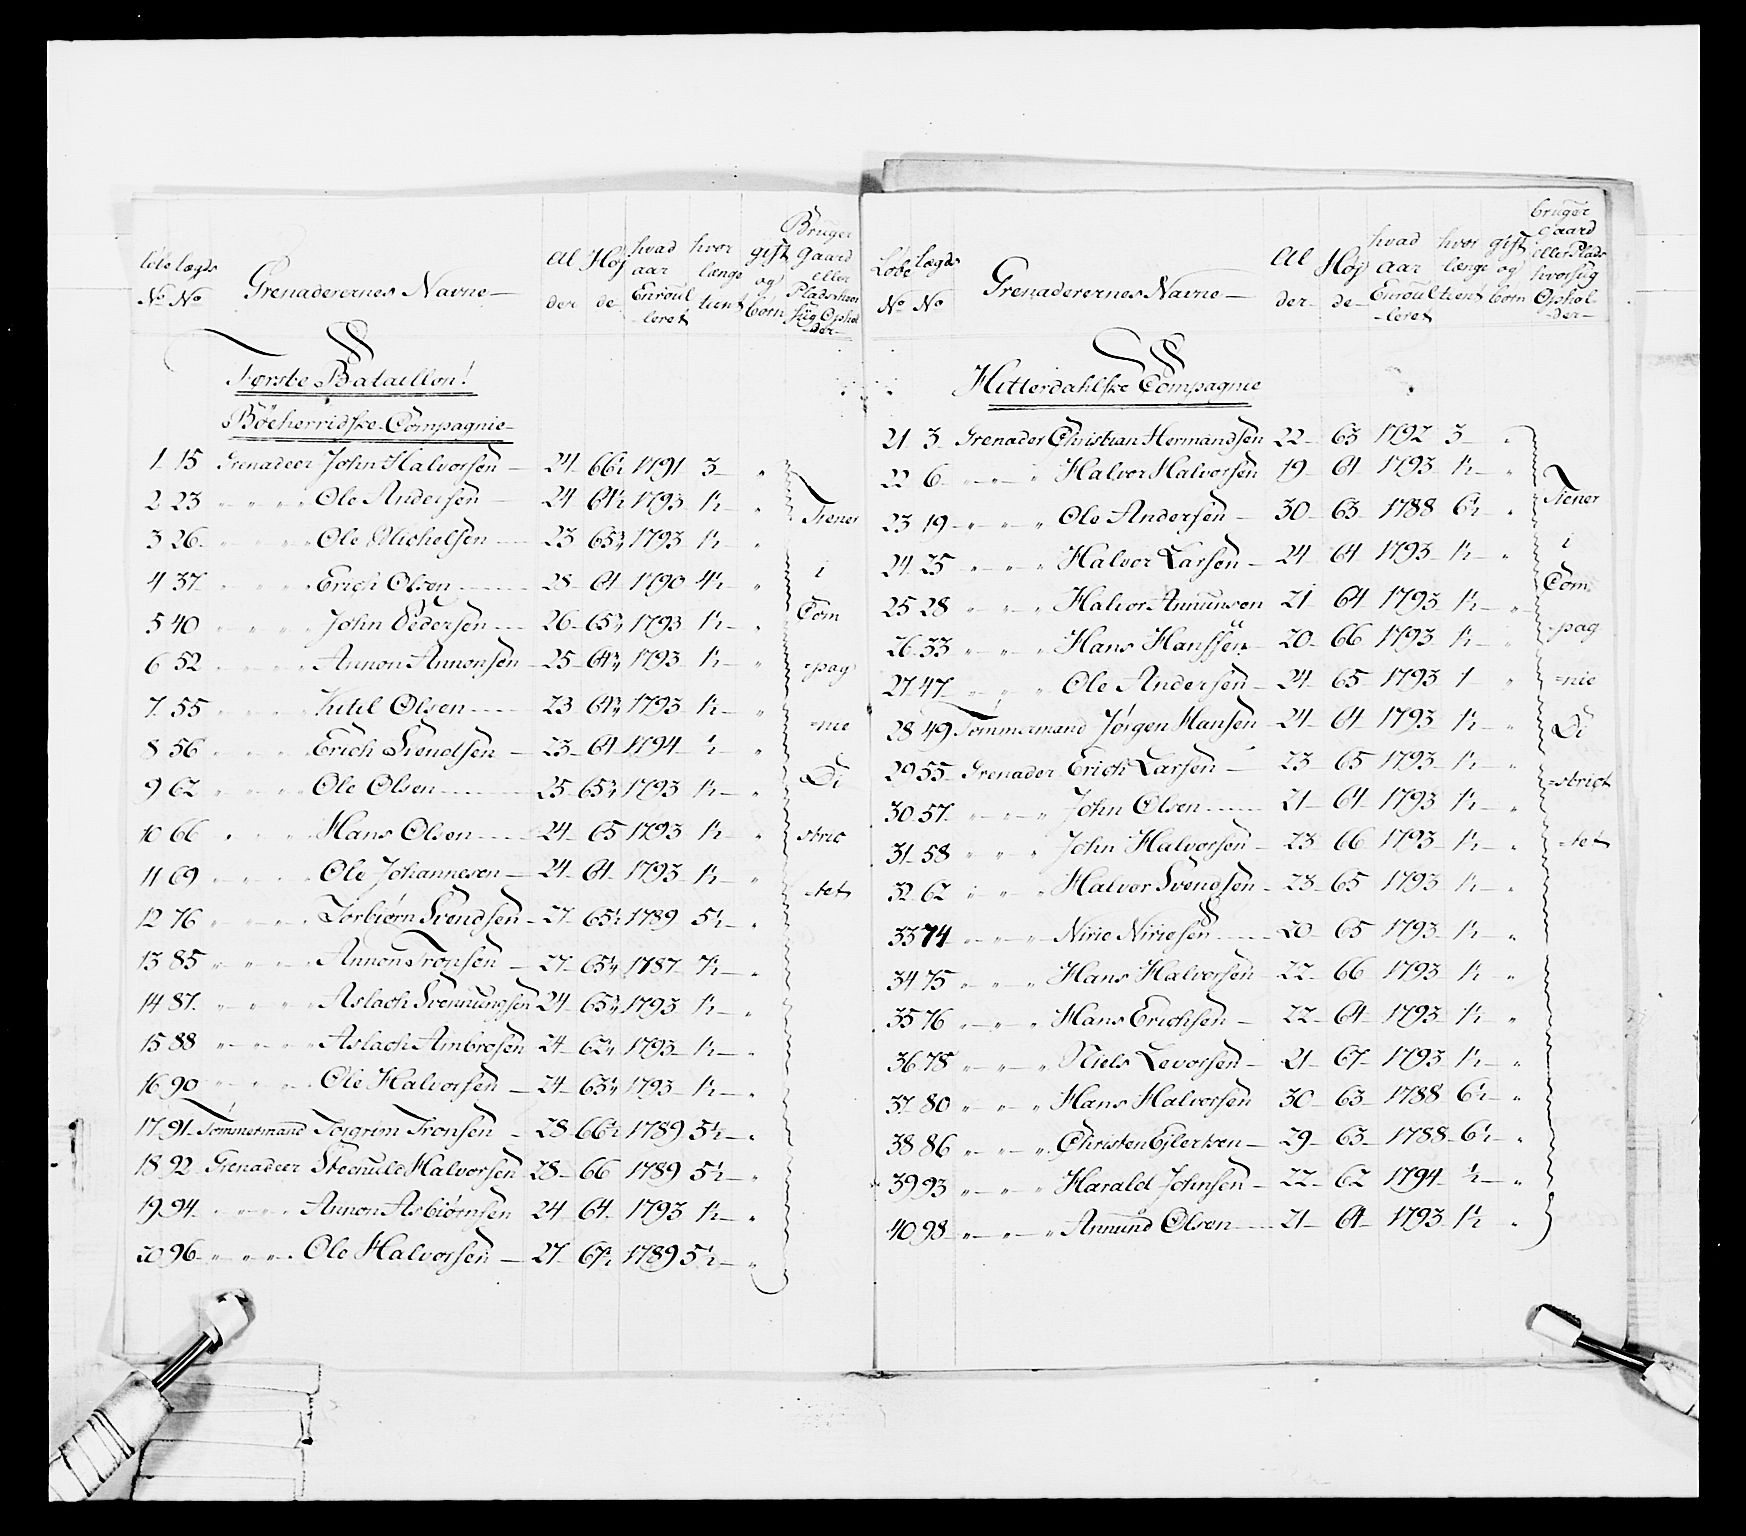 Løbe No
Lægds No
Grenaderernes Navne
Alder
Høyde
hvad aar Enroulleret
hvor længe tient
gift og børn
Bruger Gaard eller Plads hvor sig Opholder
Første Bataillon!
Bøeherridske Compagnie
1 15 Grenadeer John Halvorsen 24 66½ 1791 3 "
2 23 " " " Ole Andersen 24 64½ 1793 1½ "
3 26 " " " Ole Michelsen 23 65¾ 1793 1½ "
4 37 " " " Erich Olsen 28 64 1790 4½ "
5 40 " " " John Pedersen 26 65¾ 1793 1½ "
6 52 " " " Annon Annonsen 25 64¾ 1793 1½ "
7 55 " " " Kitil Olsen 23 64¾ 1793 1½ "
8 56 " " " Erich Svendsen 23 64 1794 ½ "
9 62 " " " Ole Olsen 25 65¾ 1793 1½ "
10 66 " " " Hans Olsen 24 65 1793 1½ "
11 69 " " " Ole Johannesen 24 64 1793 1½ "
12 76 " " " Torbiørn Svendsen 27 65½ 1789 5½ "
13 85 " " " Annon Tronsen 27 65¼ 1787 7½ "
14 87 " " " Aslach Svennungsen 24 65¾ 1793 1½ "
15 88 " " " Aslach Ambrosen 24 62¼ 1793 1½ "
16 90 " " " Ole Halvorsen 24 63¼ 1793 1½ "
17 91 Tømmermand Torgrim Tronsen 28 66½ 1789 5½ "
18 92 Grenadeer Steenuld Halvorsen 28 66 1789 5½ "
19 94 " " " Annon Asbiørnsen 24 64 1793 1½ "
20 96 " " " Ole Halvorsen 27 67½ 1789 5½ "
Tiener
i
Com
=pag
=nie
Di
stric
tet
Løbe No
Lægds No
Grenaderernes Navne
Alder
Høyde
hvad aar Enroulleret
hvor længe tient
gift og børn
bruger Gaard eller Plads hvor sig Opholder
Hitterdahlske Compagnie
21 3 Grenader Christian Hermandsen 22 63 1792 3 "
22 6 " " " Halvor Halvorsen 19 64 1793 1½ "
23 19 " " " Ole Andersen 30 63 1788 6½ "
24 25 " " " Halvor Larsen 24 64 1793 1½ "
25 28 " " " Halvor Amunsen 21 64 1793 1½ "
26 33 " " " Hans Hanssen 20 66 1793 1½ "
27 47 " " " Ole Andersen 24 65 1793 1 "
28 49 Tømmermand Jørgen Hansen 24 64 1793 1½ "
29 55 Grenader Erich Larsen 23 65 1793 1½ "
30 57 " " " John Olsen 21 64 1793 1½ "
31 58 " " " John Halvorsen 23 66 1793 1½ "
32 62 " " " Halvor Svendsen 23 65 1793 1½ "
33 74 " " " Nirie Niriesen 20 65 1793 1½ "
34 75 " " " Hans Halvorsen 22 66 1793 1½ "
35 76 " " " Hans Erichsen 22 64 1793 1½ "
36 78 " " " Niels Levorsen 21 67 1793 1½ "
37 80 " " " Hans Halvorsen 30 63 1788 6½ "
38 86 " " " Christen Eilertsen 29 63 1788 6½ "
39 93 " " " Harald Johnsen 22 62 1794 ½ "
40 98 " " " Amund Olsen 21 64 1793 1½ "
Tiener
i
Com
=pag
=nie
Di
=strict
=tet